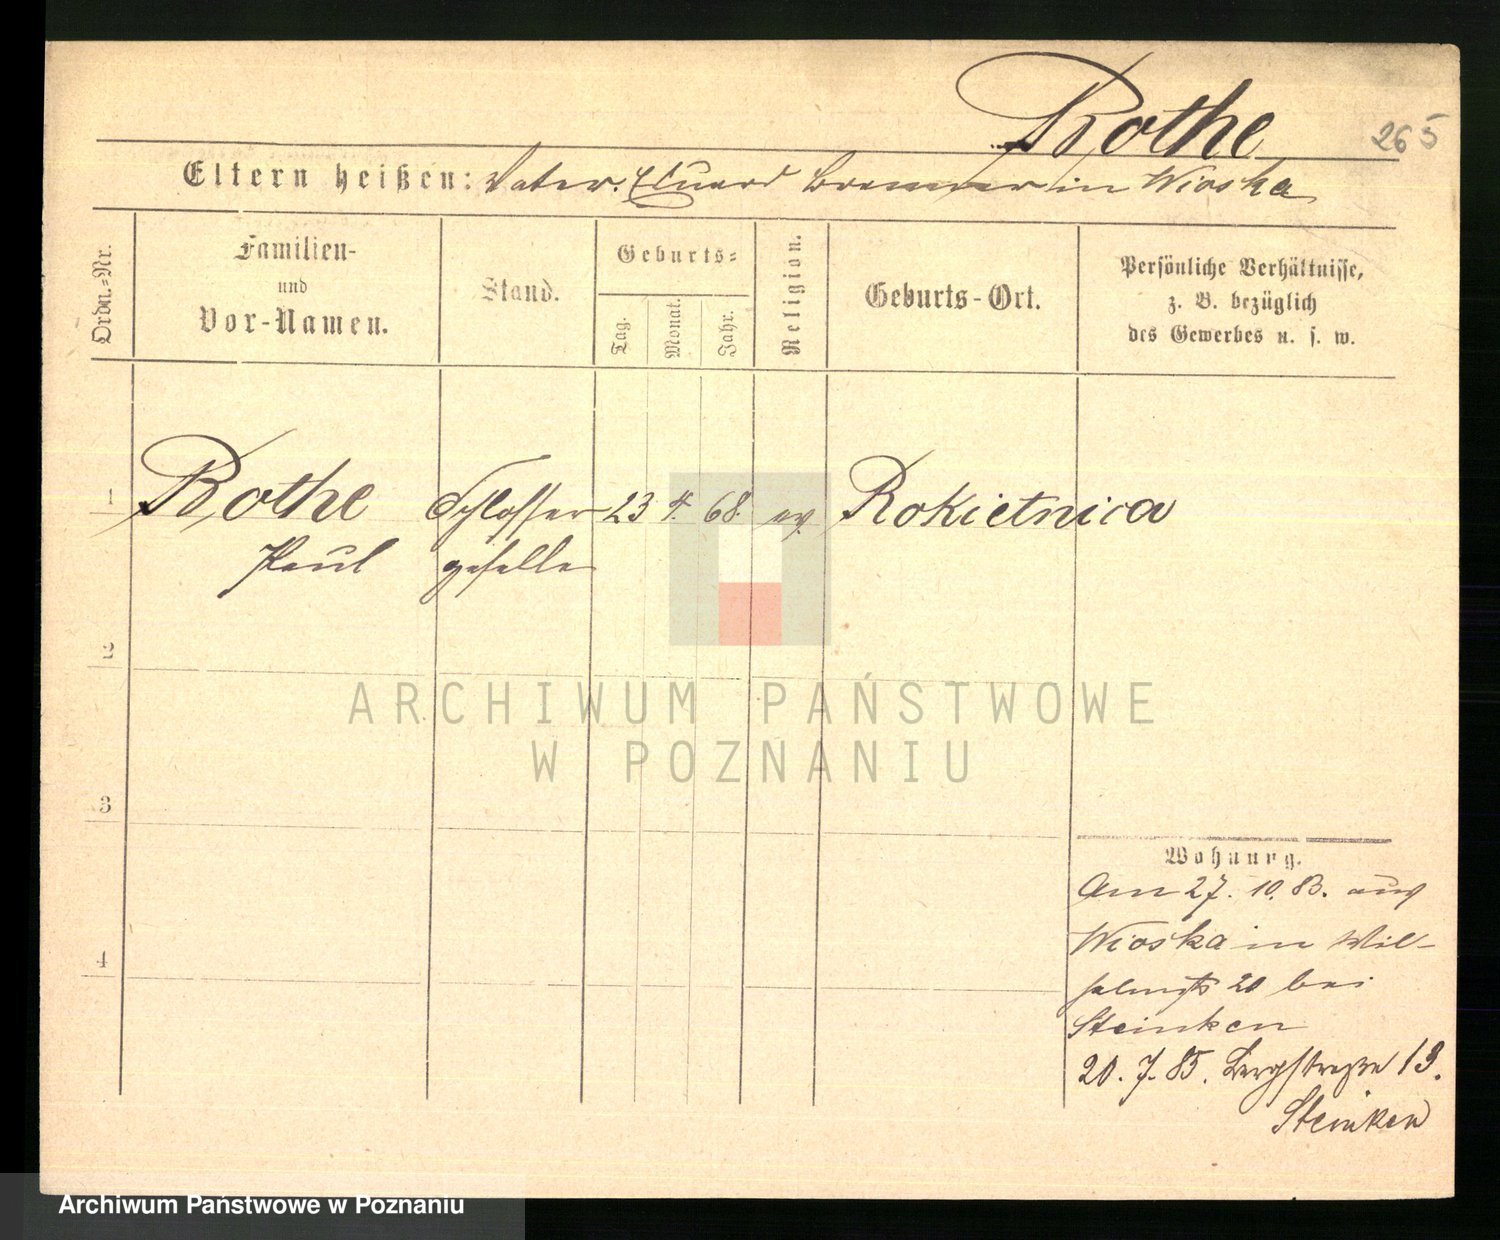 Rothe
265
Eltern heißen: Vater. Eduard Brenner in Wioska
Ordn.-Nr.
Familien-
und
Vor-Namen.
Stand.
Geburts-
Tag.
Monat.
Jahr.
Religion.
Geburts-Ort.
Persönliche Verhältnisse,
z. B. bezüglich
des Gewerbes u. s. w.
1 Rothe Schlosser 23 4. 68. ev. Rokietnica
Paul geselle
2
ARCHIWUM PAŃSTWOWE
W POZNANIU
3
Wohnung.
Am 27. 10. 83. aus
Wioska in Wil-
20 bei
4
Steinken
20. 7. 85. Bergstraße 13.
Steinken
Archiwum Państwowe w Poznaniu